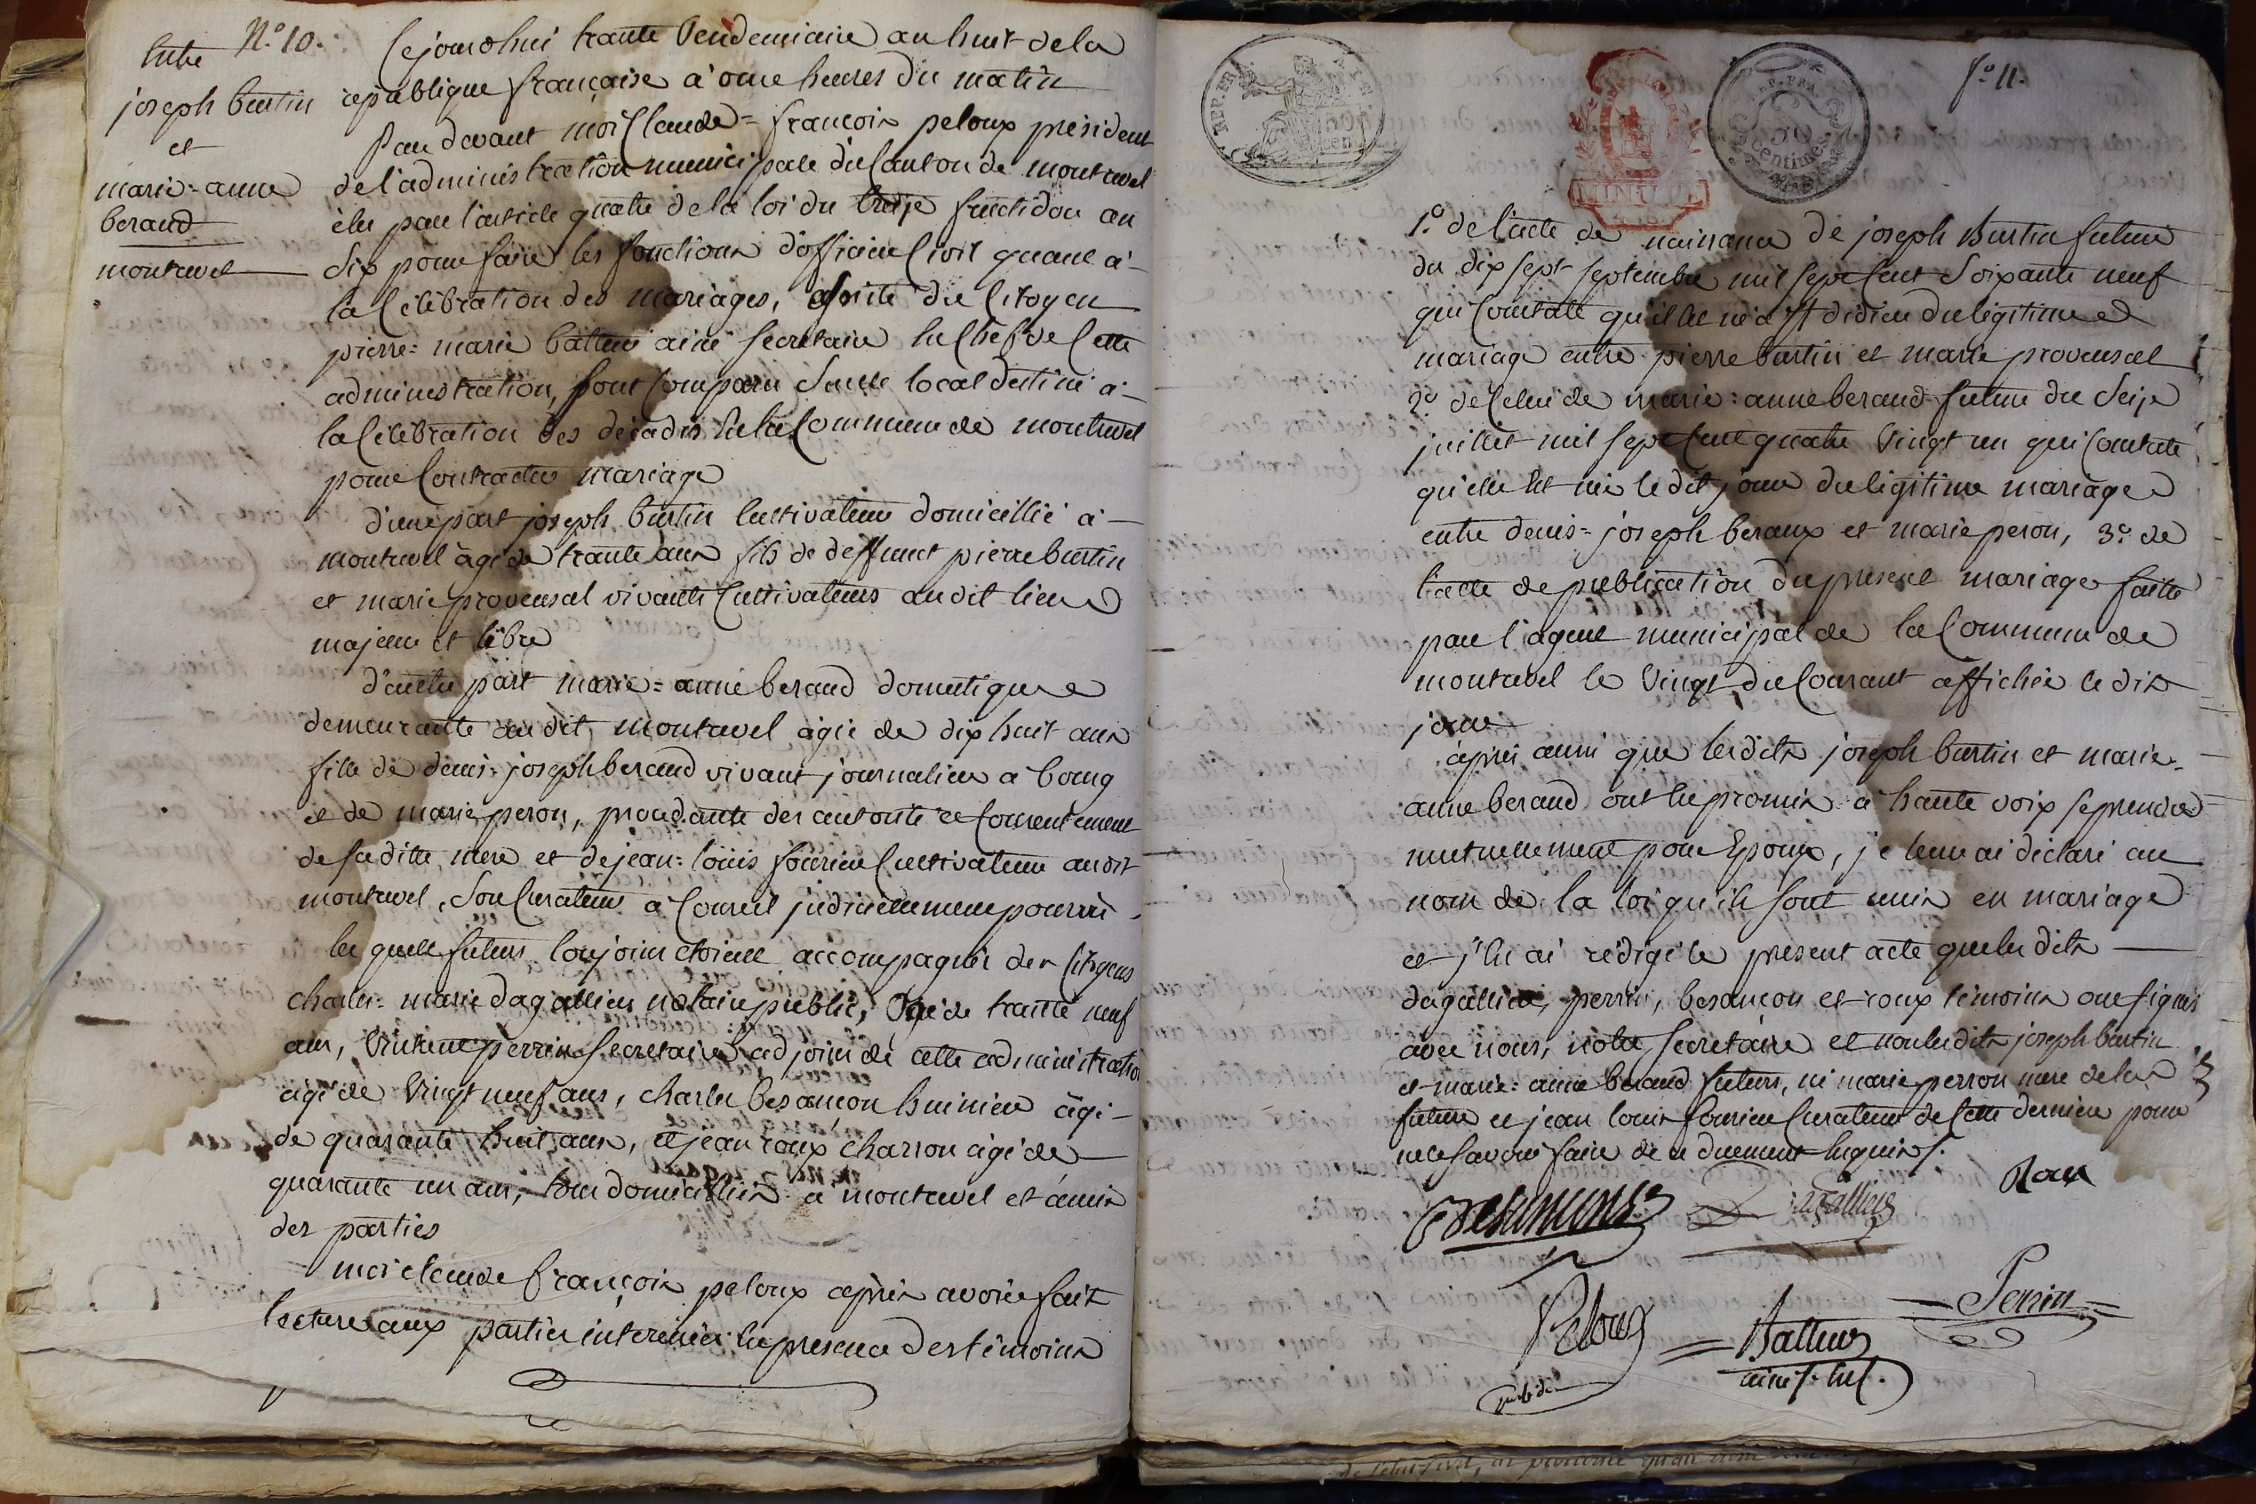 N.o 10.
Entre
joseph burtin
et
marie=anne
beraud
montrevel
Cejourdhui trante Vendemiaire an huit de la
republique française à onze heures du matin
Par devant moi Claude=françois peloux président
de l'administration municipale du Canton de montrevel
élu par l'article quatre de la loi du treize fructidor an
Six pour faire les fonctions d'officier Civil quant a
la Célébration des mariages, assisté du Citoyen
pierre=marie batteur ainé secretaire en Chef de Cette
administration, sont Comparu Dans le local destiné à
la Célébration des décadis en la Commune de montrevel
pour Contracter mariage
d'une part joseph burtin Cultivateur domicillié à
montrevel agé de trante ans fils de deffunct pierre burtin
et marie provensal vivante Cultivateurs au dit lieu
majeur et libre
d'autre part marie=anne beraud domestique
demeurante au dit montrevel agée de dix huit ans
fille de denis=joseph beraud vivant journalier a bourg
et de marie peron, procédante des autorité et Consentement
de sa ditte mere et de jean=loüis fourier Cultivateur au dit
montrevel, Son Curateur a Conseil judiciairement pourvu
les quels futurs Conjoins étoient accompagnés des Citoyens
charles=marie dagallier notaire public, agé de trante neuf
ans, perrin secretaire adjoint de cette administration
agé de Vingt neuf ans, charles besançon huissier âgé
de quarante huit ans, et jean roux charron agé de
quarante un ans, tous domicilliés a montrevel et amis
des parties
moi claude françois peloux après avoir fait
lecture aux parties interessées en presence des témoins
f.o 11.
REP. FRA.
50 cent
MINUTE
REP. FRA.
50 Centimes
1.o de l'acte de naissance de joseph Burtin futur
du dix sept septembre mil sept Cent Soixante neuf
qui Constate qu'il est né a St didier du légitime
mariage entre pierre burtin et marie provensal
2.o de Celui de marie=anne beraud future du Seize
juillet mil sept Cent quatre Vingt un qui Constate
qu'elle est née le dit jour du légitime mariage
entre denis=joseph beraux et marie peron, 3.o de
l'acte de publication du present mariage faitte
par l'agent municipal de la Commune de
montrevel le Vingt du Courant affichée le dit
jour
après aussi que lesdits joseph burtin et marie=
anne beraud ont eu promis a haute voix se prendre
mutuellement pour Epoux, je leur ai déclaré au
nom de la loi qu'ils sont unis en mariage
et j'en ai rédigé le present acte que les dits
dagallier, perrin, besançon et roux témoins ont signés
avec nous, notre secrétaire et non les dits joseph burtin
et marie=anne beraud futurs, ni marie perron mere de la
future et jean louis fourier Curateur de Cette derniere pour
ne le savoir faire de ce duement enquis.
Besançons
Dagallier
Roux
Peloux
présid.
Batteur
ainé s. en C.
Perrin